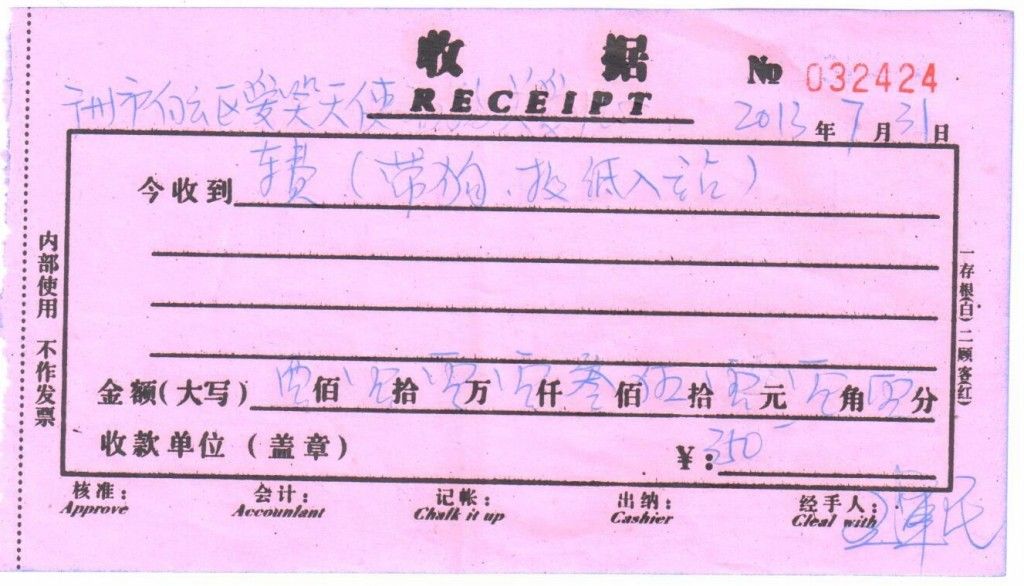 收据 № 032424
RECEIPT
市白云区爱笑天使
2013年7月31日
今收到 车费(带狗、投低入站)
金额(大写) 零佰零拾零万零仟叁佰伍拾零元零角零分
收款单位(盖章) ¥:350
核准: 会计: 记帐: 出纳: 经手人:
Approve Accountant Chalk it up Cashier Cleal with
内部使用 不作发票
一存根(白)二顾客(红)